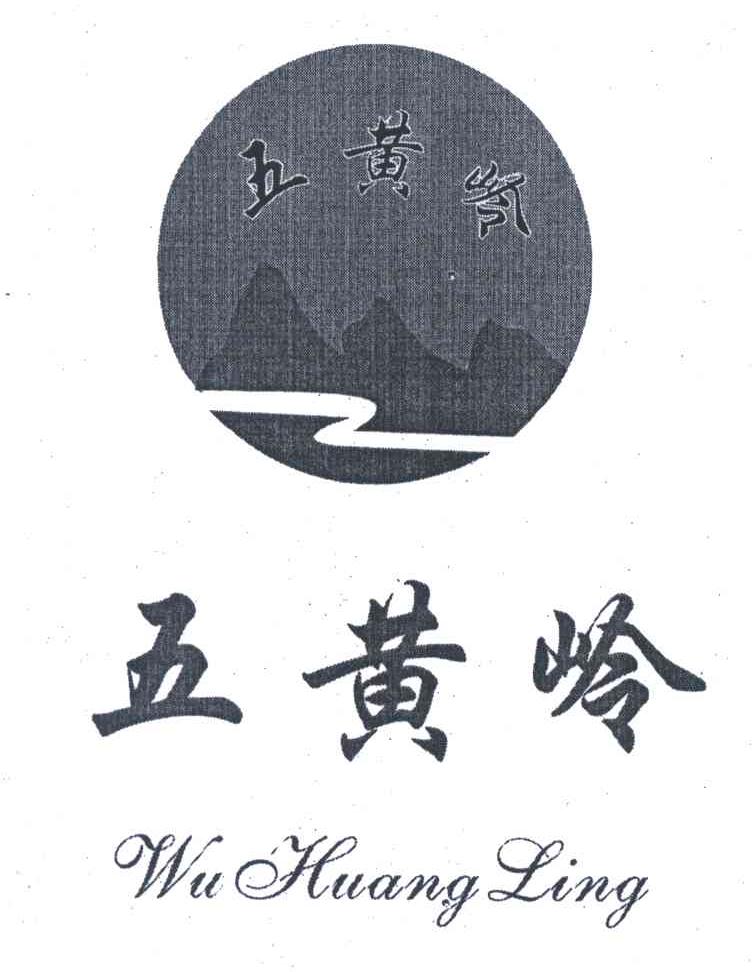 五黄岭
五黄岭
Wu Huang Ling